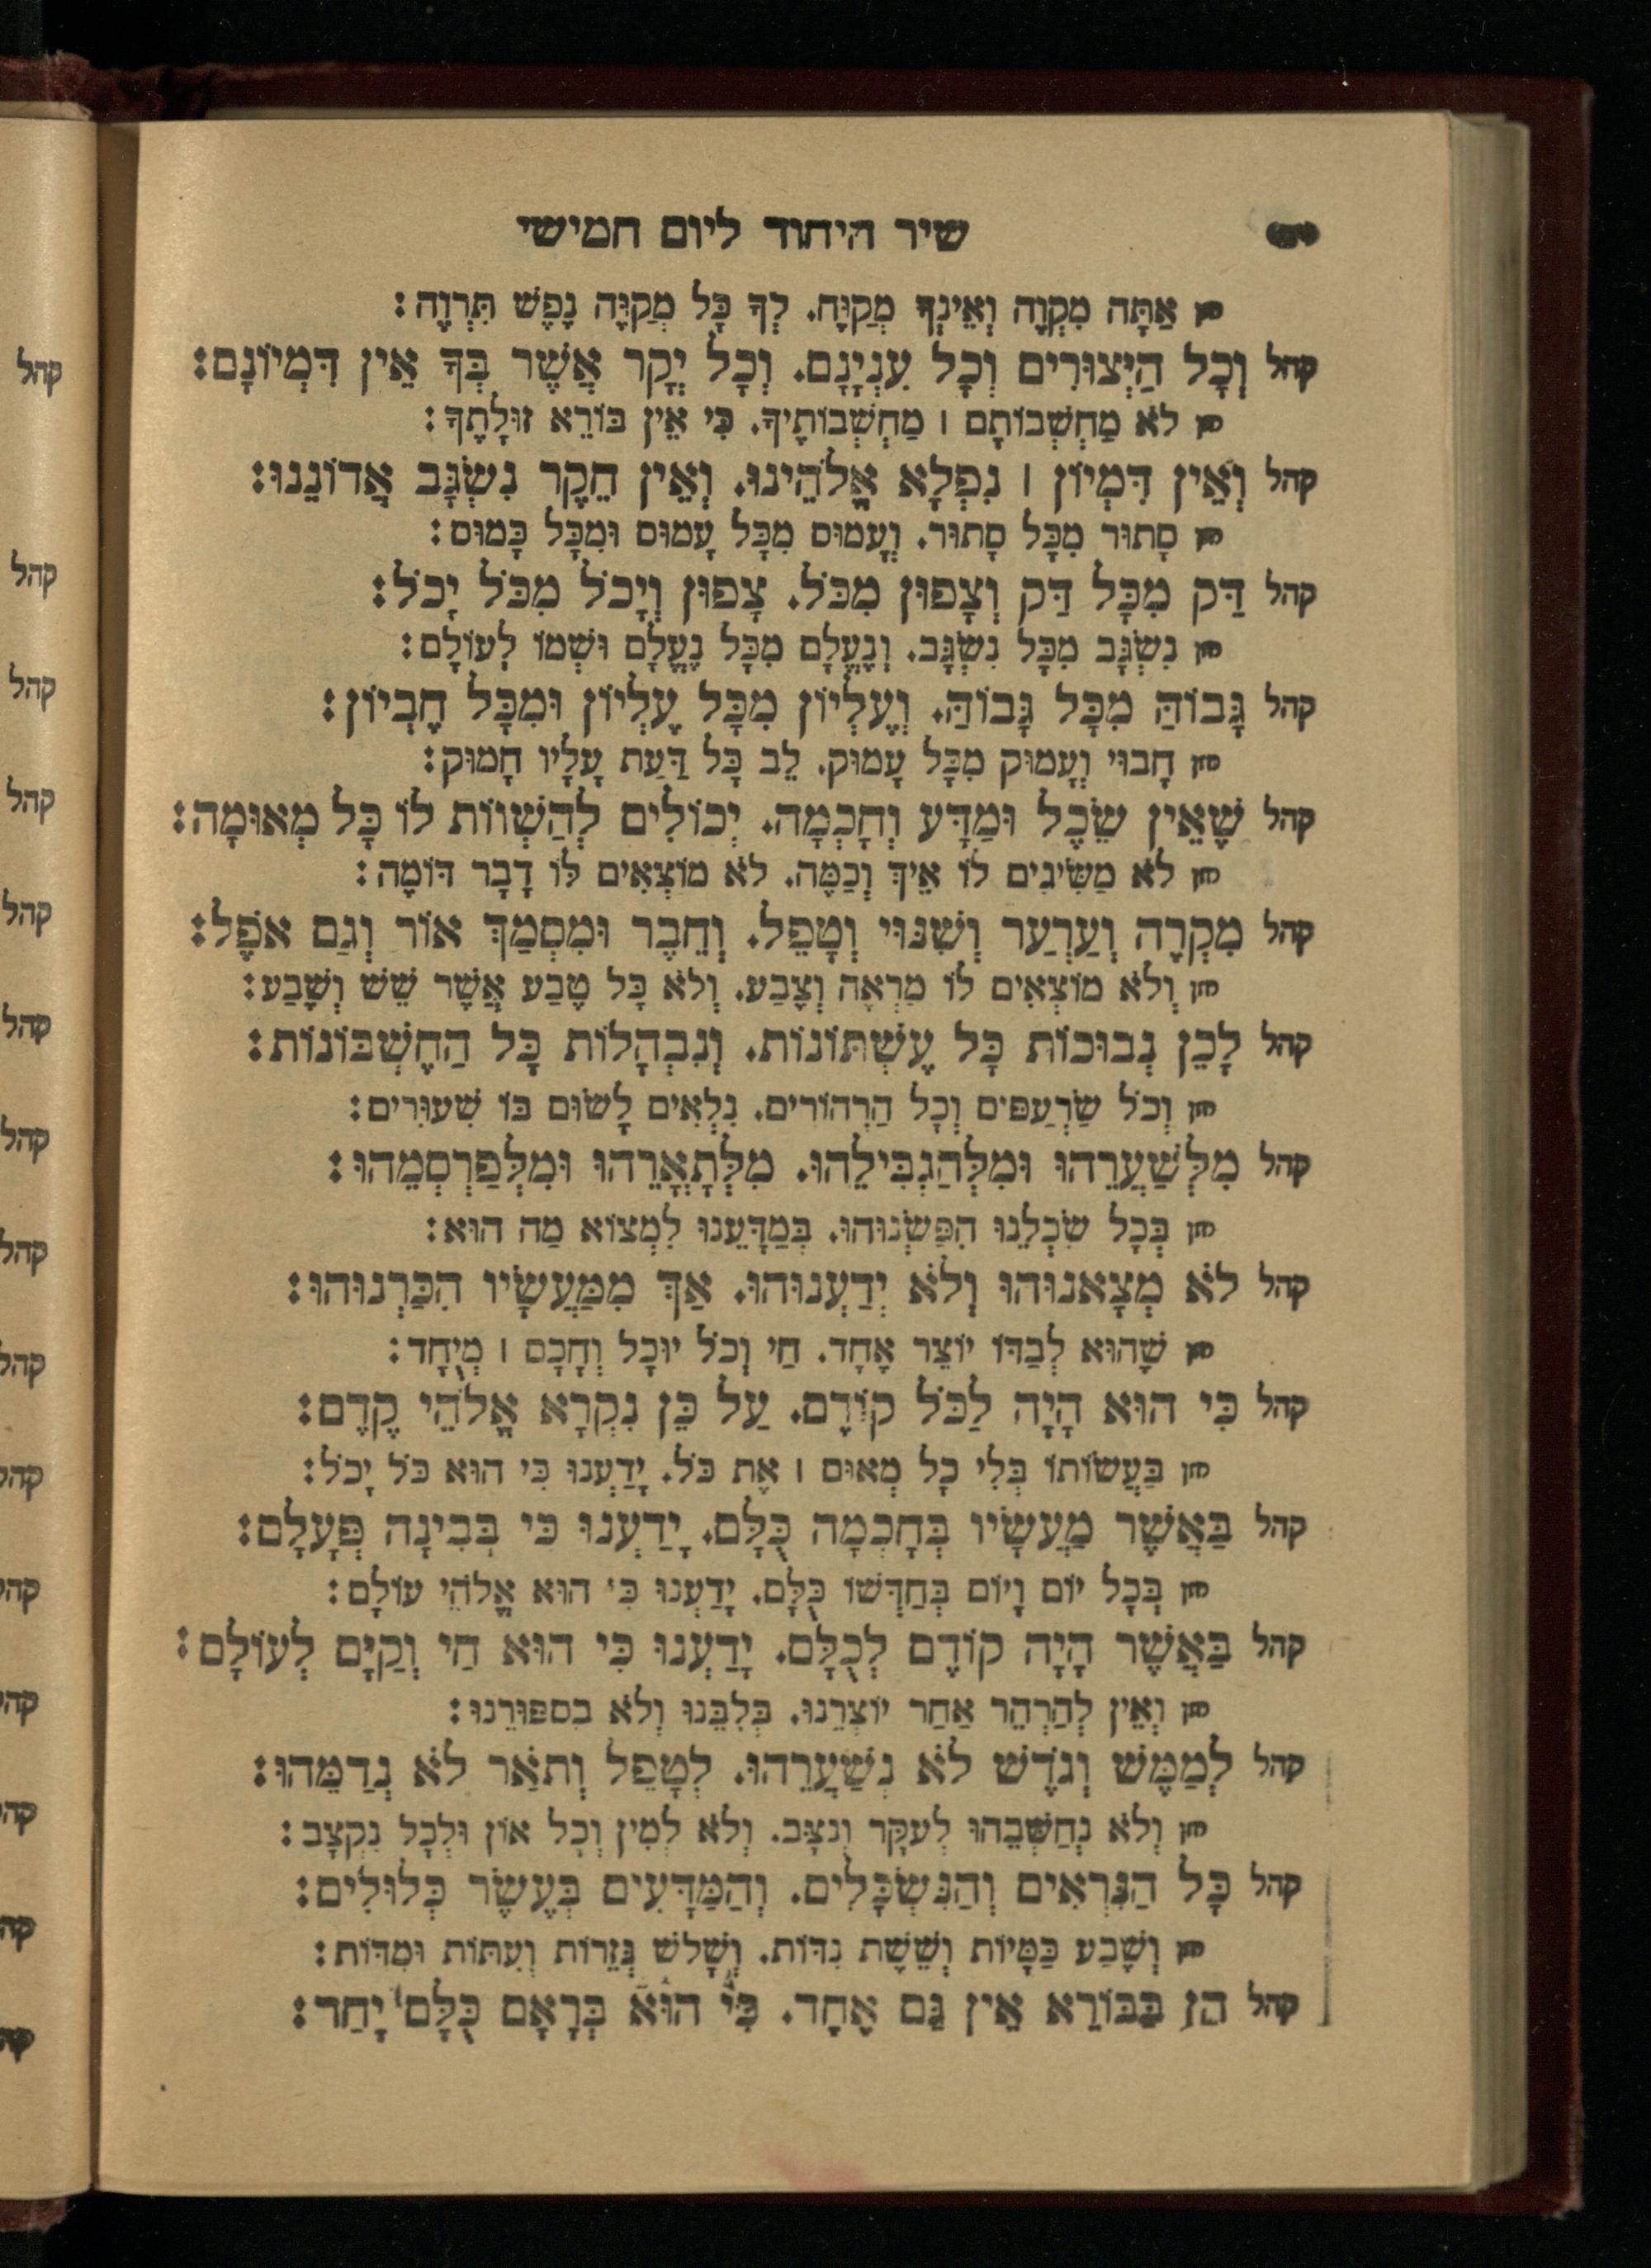 שיר היחוד ליום חמישי
חזן אַתָּה מִקְוֶה וְאֵינְךָ מְקַוֶּה. לְךָ כָּל מְקַוֶּה נֶפֶשׁ תִּרְוֶה:
קהל וְכָל הַיְצוּרִים וְכָל עִנְיָנָם. וְכָל יְקָר אֲשֶׁר בְּךָ אֵין דִּמְיוֹנָם:
חזן לֹא מַחְשְׁבוֹתָם ׀ מַחְשְׁבוֹתֶיךָ. כִּי אֵין בּוֹרֵא זוּלָתֶךָ:
קהל וְאֵין דִּמְיוֹן ׀ נִפְלָא אֱלֹהֵינוּ. וְאֵין חֵקֶר נִשְׂגָּב אֲדוֹנֵנוּ:
חזן סָתוּר מִכָּל סָתוּר. וְעָמוּס מִכָּל עָמוּס וּמִכָּל כָּמוּס:
קהל דַּק מִכָּל דַּק וְצָפוּן מִכֹּל. צָפוּן וְיָכֹל מִכֹּל יָכֹל:
חזן נִשְׂגָּב מִכָּל נִשְׂגָּב. וְנֶעֱלָם מִכָּל נֶעֱלָם וּשְׁמוֹ לְעוֹלָם:
קהל גָּבוֹהַּ מִכָּל גָּבוֹהַּ. וְעֶלְיוֹן מִכָּל עֶלְיוֹן וּמִכָּל חֶבְיוֹן:
חזן חָבוּי וְעָמוּק מִכָּל עָמוּק. לֵב כָּל דַּעַת עָלָיו חָמוּק:
קהל שֶׁאֵין שֵׂכֶל וּמַדָּע וְחָכְמָה. יְכוֹלִים לְהַשְׁווֹת לוֹ כָּל מְאוּמָה:
חזן לֹא מַשִּׂיגִים לוֹ אֵיךְ וְכַמֶּה. לֹא מוֹצְאִים לוֹ דָּבָר דּוֹמֶה:
קהל מִקְרֶה וְעַרְעַר וְשִׁנּוּי וְטָפֵל. וְחֵבֶר וּמִסְמַךְ אוֹר וְגַם אֹפֶל:
חזן וְלֹא מוֹצְאִים לוֹ מַרְאֶה וְצֶבַע. וְלֹא כָּל טֶבַע אֲשֶׁר שֵׁשׁ וְשֶׁבַע:
קהל לָכֵן נְבוּכוֹת כָּל עֶשְׁתּוֹנוֹת. וְנִבְהָלוֹת כָּל הַחֶשְׁבּוֹנוֹת:
חזן וְכֹל שַׂרְעַפִּים וְכָל הִרְהוֹרִים. נִלְאִים לָשׂוּם בּוֹ שִׁעוּרִים:
קהל מִלְּשַׁעֲרֵהוּ וּמִלְּהַגְבִּילֵהוּ. מִלְּתָאֳרֵהוּ וּמִלְּפַרְסְמֵהוּ:
חזן בְּכָל שִׂכְלֵנוּ הִפַּשְׂנוּהוּ. בְּמַדָּעֵנוּ לִמְצוֹא מַה הוּא:
קהל לֹא מְצָאנוּהוּ וְלֹא יְדַעְנוּהוּ. אַךְ מִמַּעֲשָׂיו הִכַּרְנוּהוּ:
חזן שֶׁהוּא לְבַדּוֹ יוֹצֵר אֶחָד. חַי וְכֹל יוּכַל וְחָכָם ׀ מְיֻחָד:
קהל כִּי הוּא הָיָה לַכֹּל קוֹדֶם. עַל כֵּן נִקְרָא אֱלֹהֵי קֶדֶם:
חזן בַּעֲשׂוֹתוֹ בְּלִי כָל מְאוּם ׀ אֶת כֹּל. יָדַעְנוּ כִּי הוּא כֹּל יָכֹל:
קהל בַּאֲשֶׁר מַעֲשָׂיו בְּחָכְמָה כֻּלָּם. יָדַעְנוּ כִּי בְּבִינָה פְּעָלָם:
חזן בְּכָל יוֹם וָיוֹם בְּחַדְּשׁוֹ כֻּלָּם. יָדַעְנוּ כִּי הוּא אֱלֹהֵי עוֹלָם:
קהל בַּאֲשֶׁר הָיָה קוֹדֶם לְכֻלָּם. יָדַעְנוּ כִּי הוּא חַי וְקַיָּם לְעוֹלָם:
חזן וְאֵין לְהַרְהֵר אַחַר יוֹצְרֵנוּ. בְּלִבֵּנוּ וְלֹא בְסִפּוּרֵנוּ:
קהל לְמַמָּשׁ וְגֹדֶשׁ לֹא נְשַׁעֲרֵהוּ. לְטָפֵל וְתֹאַר לֹא נְדַמֵּהוּ:
חזן וְלֹא נְחַשְּׁבֵהוּ לְעִקָּר וְנִצָּב. וְלֹא לְמִין וְכָל אוֹן וּלְכָל נִקְצָב:
קהל כָּל הַנִּרְאִים וְהַנִּשְׂכָּלִים. וְהַמַּדָּעִים בְּעֶשֶׂר כְּלוּלִים:
חזן וְשֶׁבַע כַּמָּיוֹת וְשֵׁשֶׁת נִדּוֹת. וְשָׁלֹשׁ גְּזֵרוֹת וְעִתּוֹת וּמִדּוֹת:
קהל הֵן בַּבּוֹרֵא אֵין גַּם אֶחָד. כִּי הוּא בְּרָאָם כֻּלָּם יָחַד:
קהל
קהל
קהל
קהל
קהל
קהל
קהל
קהל
קהל